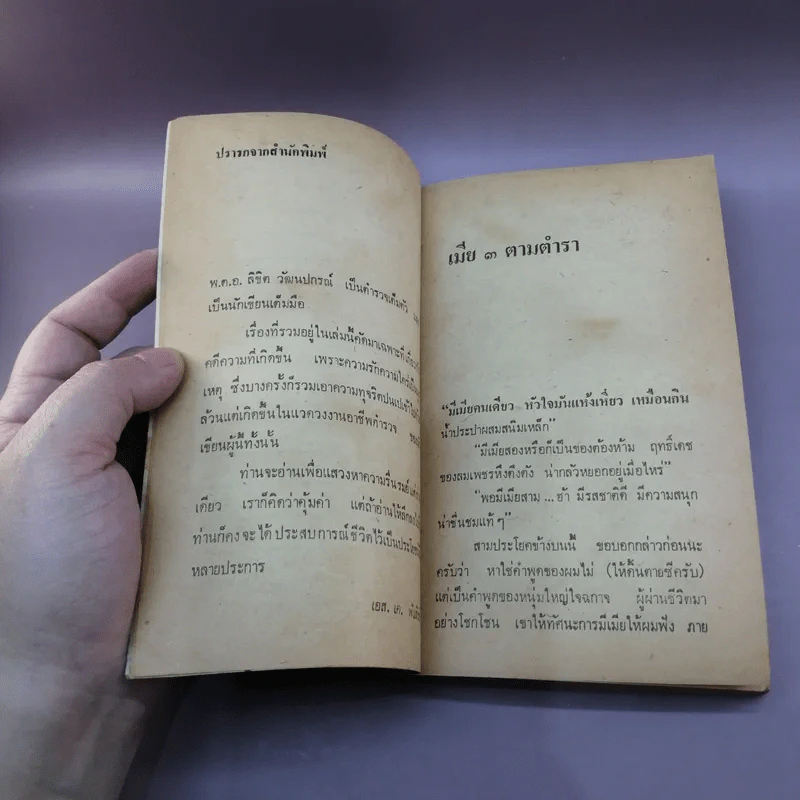 ปรารภจากสำนักพิมพ์
พ.ต.อ. ลิขิต วัฒนปกรณ์ เป็นตำรวจเต็มตัว และ
เป็นนักเขียนเต็มมือ
เรื่องที่รวมอยู่ในเล่มนี้คัดมาเฉพาะที่เกี่ยวกับ
คดีความที่เกิดขึ้น เพราะความรักความใคร่เป็น
เหตุ ซึ่งบางครั้งก็รวมเอาความทุจริตปนเปเข้าไป
ล้วนแต่เกิดขึ้นในแวดวงงานอาชีพตำรวจ
เขียนผู้นี้ทั้งนั้น
ท่านจะอ่านเพื่อแสวงหาความรื่นรมย์
เดียว เราก็คิดว่าคุ้มค่า แต่ถ้าอ่านให้ลึก
ท่านก็คงจะได้ประสบการณ์ชีวิตไว้เป็นประโยชน์
หลายประการ
เอส. เค.
เมีย ๓ ตามตำรา
“มีเมียคนเดียว หัวใจมันแห้งเหี่ยว เหมือนกิน
น้ำประปาผสมสนิมเหล็ก”
“มีเมียสองหรือก็เป็นของต้องห้าม ฤทธิ์เดช
ของลมเพชรหึงตึงตัง น่ากลัวหยอกอยู่เมื่อไหร่”
“พอมีเมียสาม ... ฮ้า มีรสชาติดี มีความสนุก
น่าชื่นชมแท้ ๆ”
สามประโยคข้างบนนี้ ขอบอกกล่าวก่อนนะ
ครับว่า หาใช่คำพูดของผมไม่ (ให้ดิ้นตายซีครับ)
แต่เป็นคำพูดของหนุ่มใหญ่ใจฉกาจ ผู้ผ่านชีวิตมา
อย่างโชกโชน เขาให้ทัศนะการมีเมียให้ผมฟัง ภาย